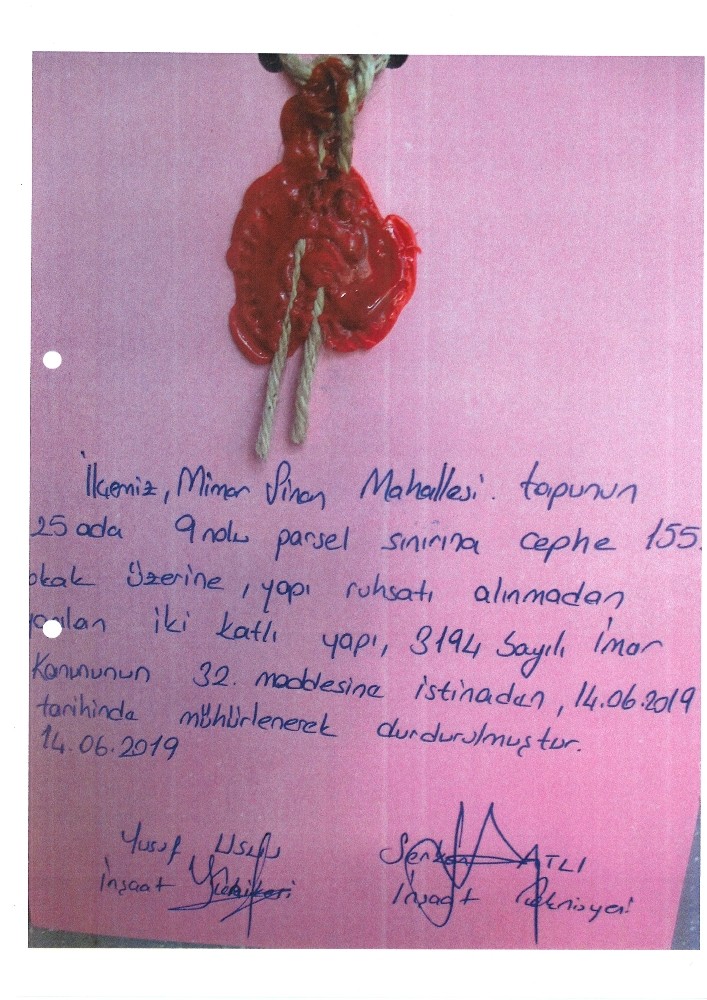 İlçemiz, Mimar Sinan Mahallesi. tapunun
25 ada 9 nolu parsel sınırına cephe 155.
okak üzerine, yapı ruhsatı alınmadan
yapılan iki katlı yapı, 3194 Sayılı İmar
Kanununun 32. maddesine istinadan, 14.06.2019
tarihinde mühürlenerek durdurulmuştur.
14.06.2019
Yusuf USLU Serkan ATLI
İnşaat İnşaat Teknisyeni